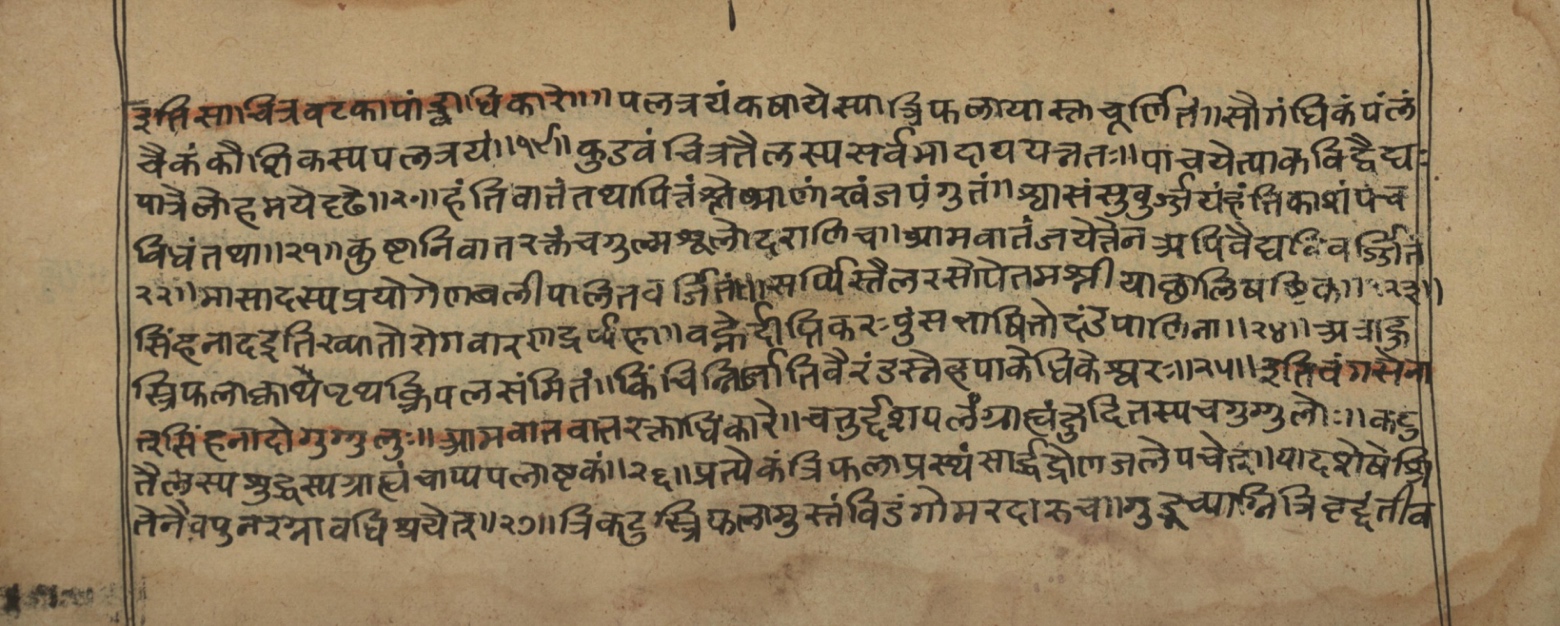 इति सा चित्रवटका पांड्वाधिकारे॥॥पलत्रयं कषायेस्पा त्रिफलायास्तु चूर्णितं॥सौगंधिकं पलं
चैकं कौशिकस्य पलत्रयं॥१९॥कुडवं चित्रतैलस्य सर्वमादाय यत्नतः॥पाचयेत्पाकविद्वैद्यः
पात्रे लोहमये दृढे॥२०॥हंति वातं तथा पित्तं श्लेष्माणं खंज पंगुतं॥श्वासं सुदुर्ज्जयं हंति काशं पंच
विधं तथा॥२१॥कुष्टानि वातरक्तं च गुल्मशूलोदराणि च॥आमवातं जयेत्तेन अपि वैद्यविवर्ज्जितं
२२॥मासादस्य प्रयोगेण बलीपालितवर्जितं॥सर्प्पिस्तैलरसोपेतमश्नीयाछालिषष्टिकं॥२३॥
सिंहनाद इति ख्यातो रोगवारणदर्प्पहा॥वह्नेर्दीप्तिकरः पुंसां भाषितो दंडपालिना॥२४॥अत्राहु
स्त्रिफलाक्वाथे पृथक् त्रिपलसंमितं॥किंचिन्निर्जातिवैरंडस्तैलपाकेधिकेश्वरः॥२५॥इति वंगसेना
त् सिंहनादो गुग्गुलुः॥आमवातवातरक्ताधिकारे॥चतुर्द्दशपलं ग्राह्यं कुदितस्य च गुग्गुलोः॥कटु
तैलस्य शुद्धस्य ग्राह्यं चाप्य पलाष्टकं॥२६॥प्रत्येकं त्रिफला प्रस्थं सार्द्धद्रोण जले पचेत्॥पादशेषे श्रि
तेनैव पुनरग्नावधिश्रयेत्॥२७॥त्रिकटु स्त्रिफला मुस्तं विडंगोमरदारु च॥गुडूच्याग्नि त्रिवृद्दंती व